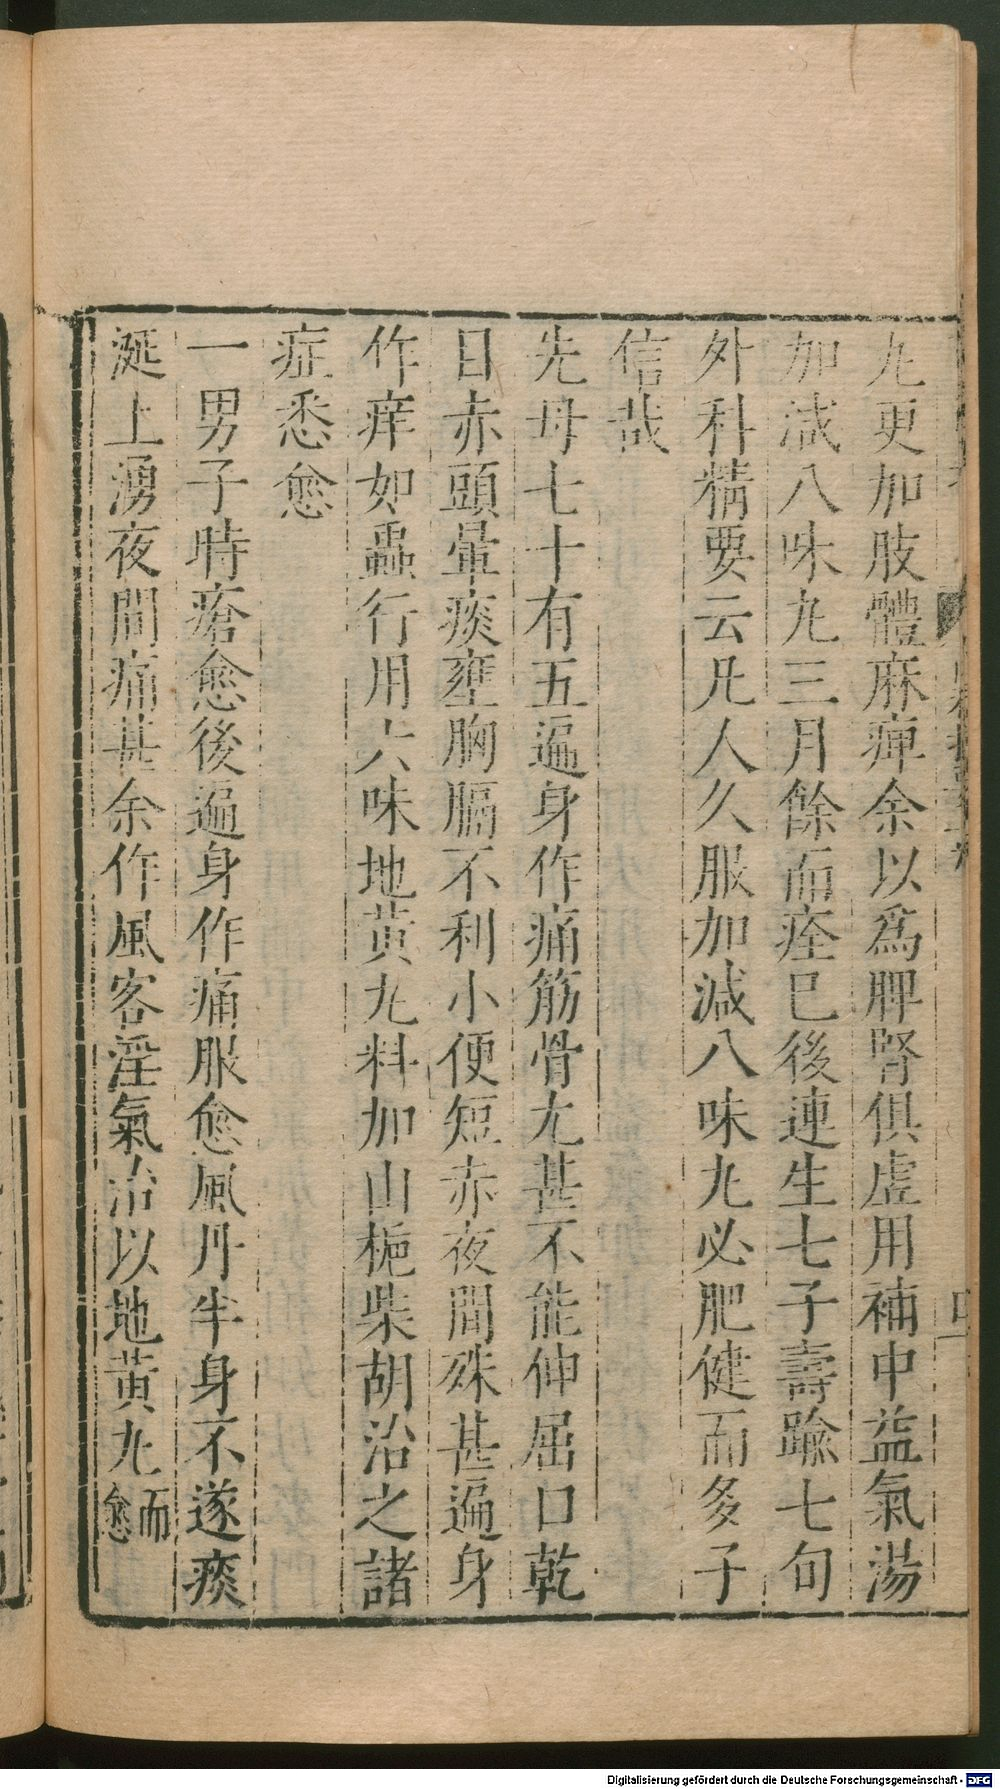 丸更加肢體麻痺余以爲脾腎俱虛用補中益氣湯
加減八味丸三月餘而痊已後連生七子壽踰七旬
外科精要云凡人久服加減八味丸必肥健而多子
信哉
先母七十有五遍身作痛筋骨尤甚不能伸屈口乾
目赤頭暈痰壅胸膈不利小便短赤夜間殊甚遍身
作痒如蟲行用六味地黃丸料加山梔柴胡治之諸
症悉愈
一男子時瘡愈後遍身作痛服愈風丹半身不遂痰
涎上湧夜間痛甚余作風客淫氣治以地黃丸而愈
Digitalisierung gefördert durch die Deutsche Forschungsgemeinschaft - DFG